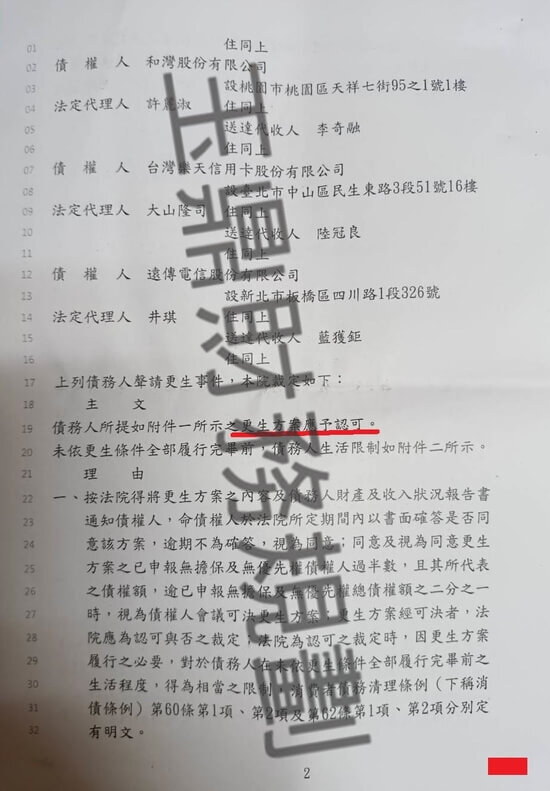 01 住同上
02 債 權 人 和灣股份有限公司
03 設桃園市桃園區天祥七街95之1號1樓
04 法定代理人 許麗淑 住同上
05 送達代收人 李奇融
06 住同上
07 債 權 人 台灣樂天信用卡股份有限公司
08 設臺北市中山區民生東路3段51號16樓
09 法定代理人 大山隆司 住同上
10 送達代收人 陸冠良
11 住同上
12 債 權 人 遠傳電信股份有限公司
13 設新北市板橋區四川路1段326號
14 法定代理人 井琪 住同上
15 送達代收人 藍獲鉅
16 住同上
17 上列債務人聲請更生事件,本院裁定如下:
18 主 文
19 債務人所提如附件一所示之更生方案應予認可。
20 未依更生條件全部履行完畢前,債務人生活限制如附件二所示。
21 理 由
22 一、按法院得將更生方案之內容及債務人財產及收入狀況報告書
23 通知債權人,命債權人於法院所定期間內以書面確答是否同
24 意該方案,逾期不為確答,視為同意;同意及視為同意更生
25 方案之已申報無擔保及無優先權債權人過半數,且其所代表
26 之債權額,逾已申報無擔保及無優先權總債權額之二分之一
27 時,視為債權人會議可決更生方案;更生方案經可決者,法
28 院應為認可與否之裁定;法院為認可之裁定時,因更生方案
29 履行之必要,對於債務人在未依更生條件全部履行完畢前之
30 生活程度,得為相當之限制,消費者債務清理條例(下稱消
31 債條例)第60條第1項、第2項及第62條第1項、第2項分別定
32 有明文。
2
玉鼎財務規劃